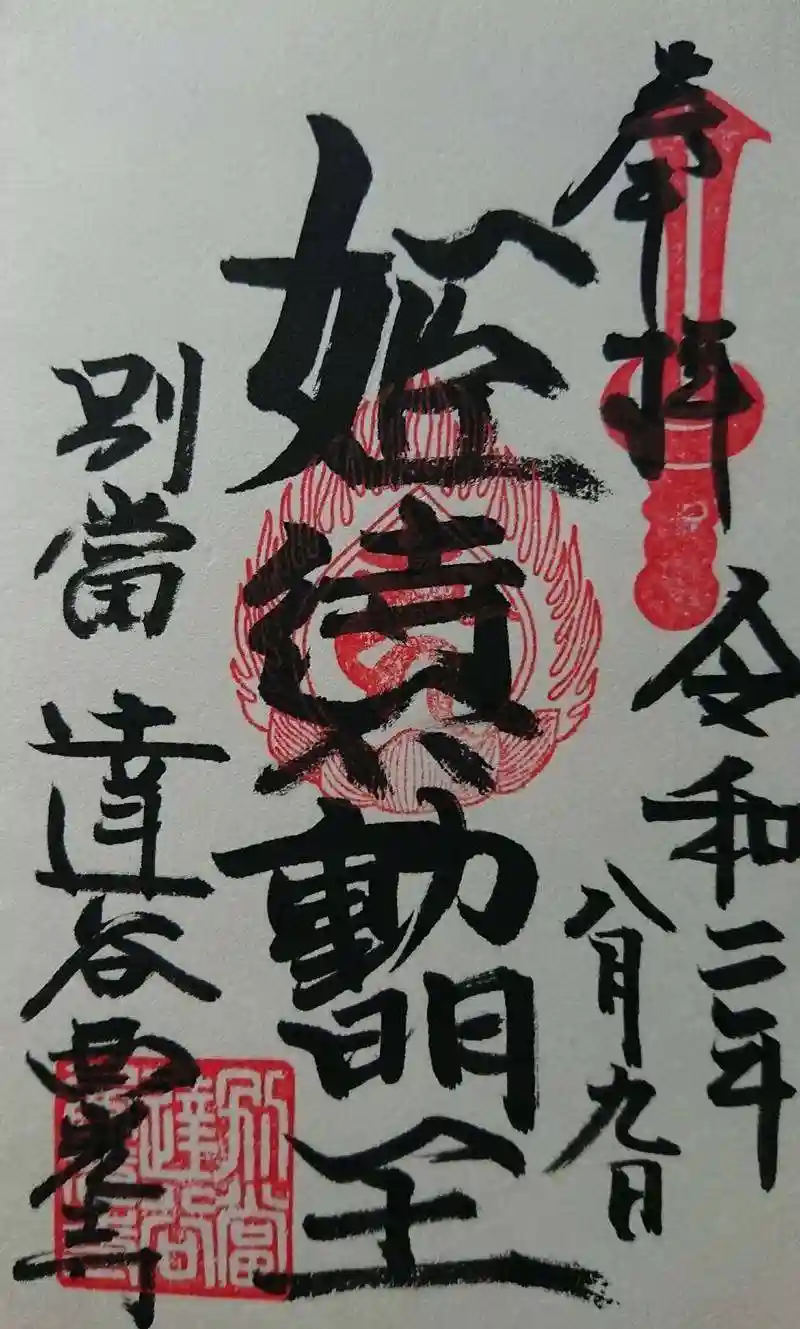 奉拝
令和二年
八月九日
姫待不動明王
別當 達谷西光寺
別當
達谷